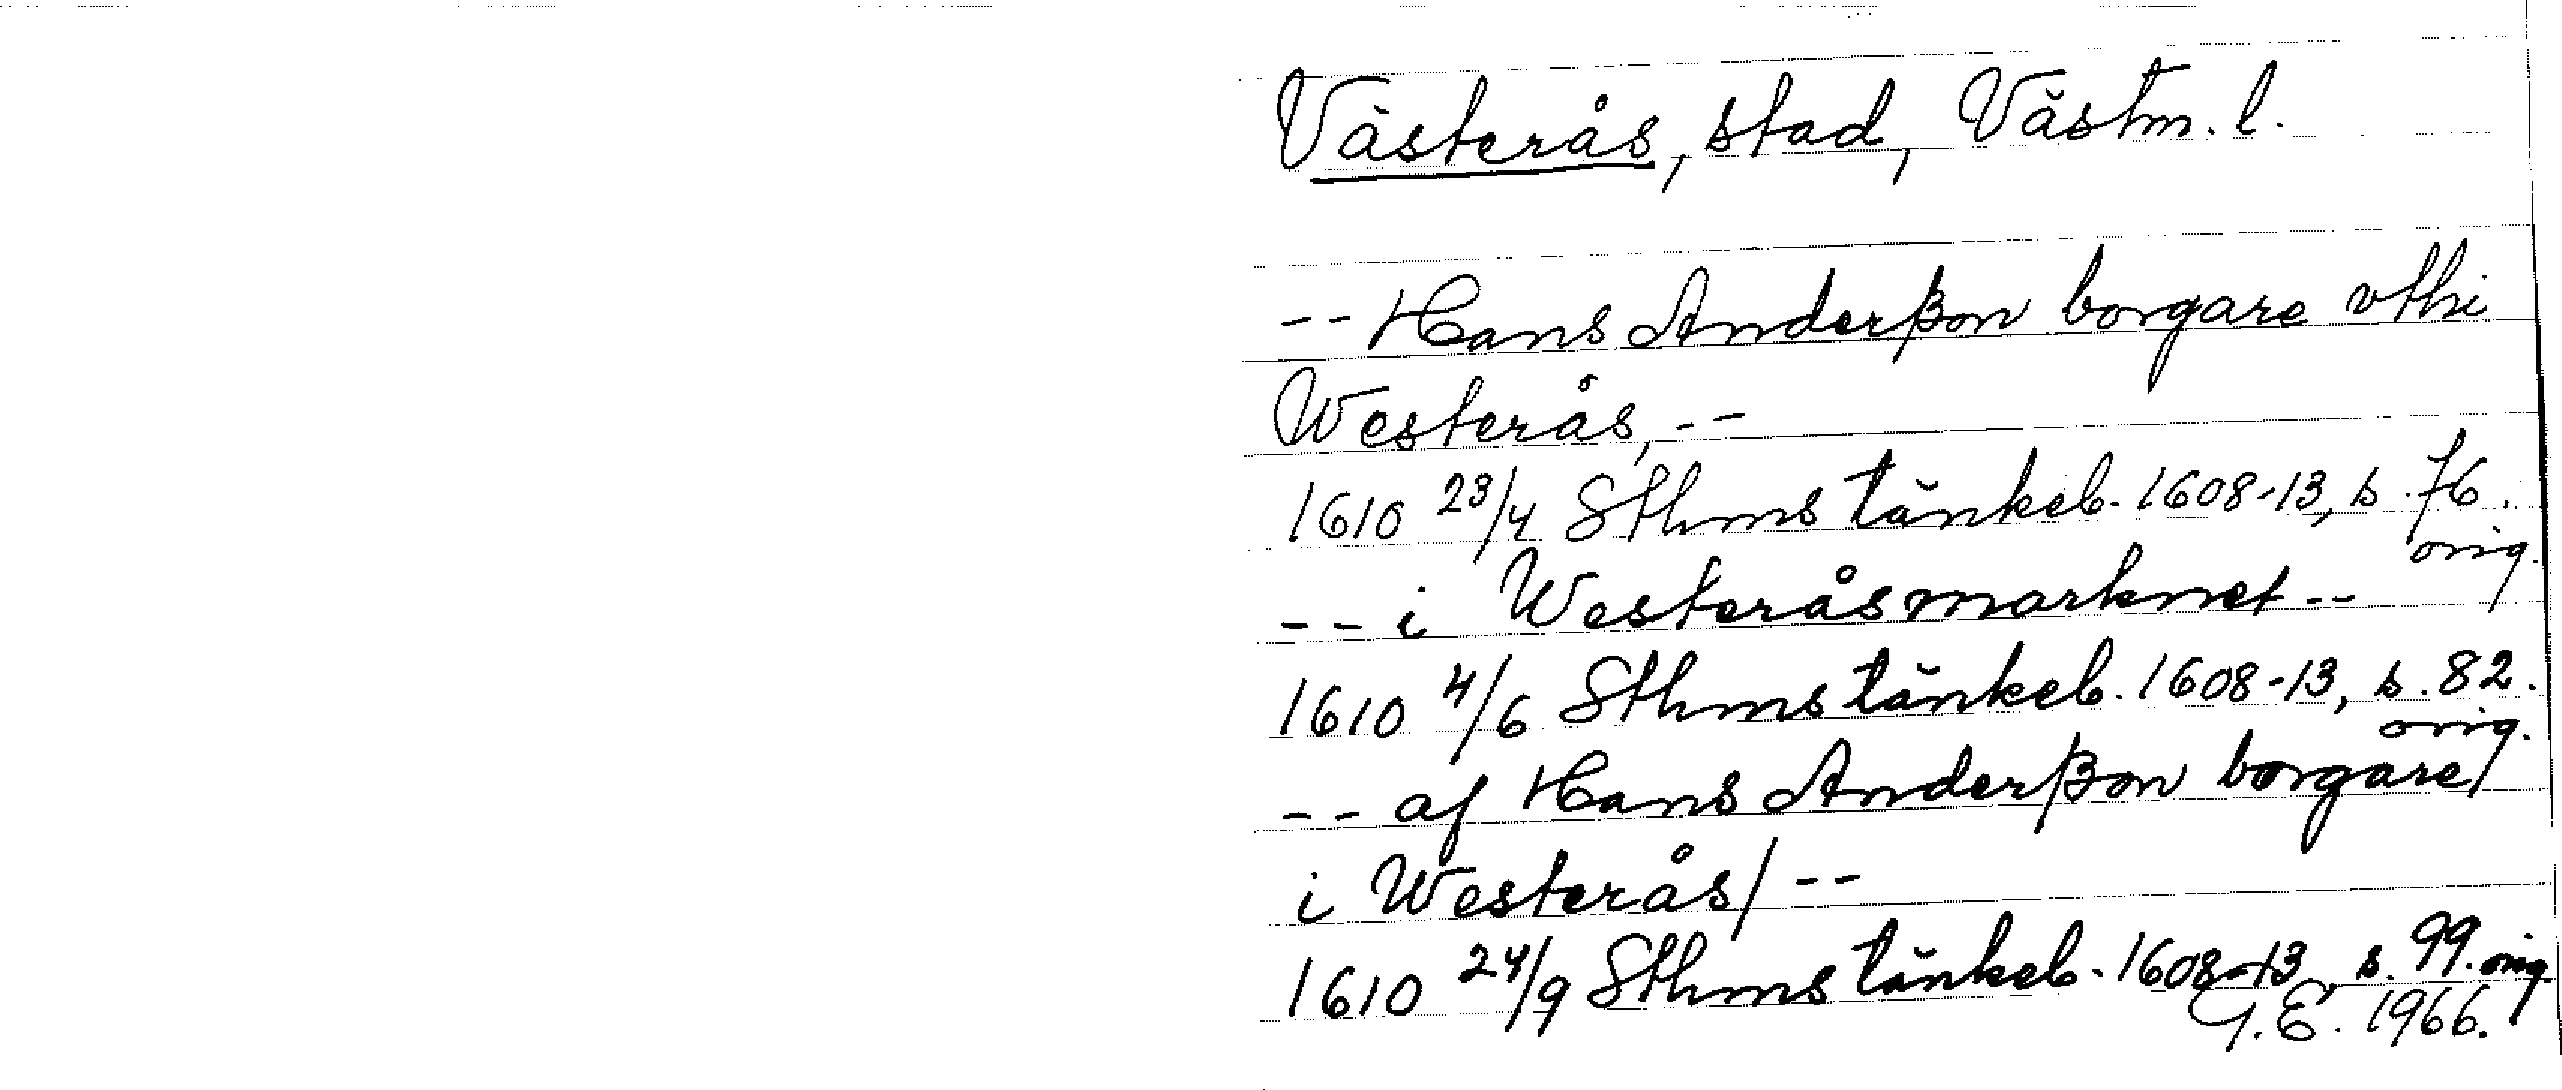 Västerås, stad, Västm. l.
-- Hans Anderßon borgare vthi
Westerås, --
1610 23/4 Sthms tänkeb. 1608-13, s. 76.
orig.
-- i Westeråsmarknet --
1610 4/6 Sthms tänkeb. 1608-13, s. 82.
orig.
-- af Hans Anderßon borgare/
i Westerås/ --
1610 24/9 Sthms tänkeb. 1608-13, s. 99. orig.
G.E. 1966.